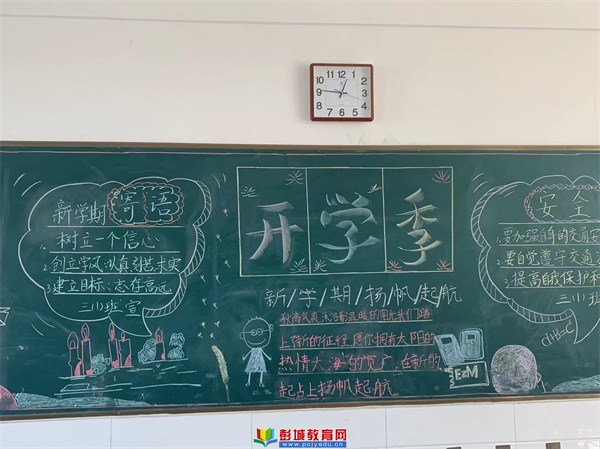 12
1
2
3
4
5
6
7
8
9
10
11
新学期
寄语
1. 树立一个信心
2. 创立学风:认真刻苦求实
3. 建立目标:志存高远
三小班 宣
开 学 季
新/学/期/扬/帆/起/航
秋高气爽 沐浴着温暖的阳光我们踏
上新的征程 愿你拥有太阳的
热情 大海的宽广,在新的
起点上扬帆起航
安全
要加强自身的交通安
要自觉遵守交通
提高自我保护
三小班
EzM
a+B=C
彭城教育网
www.pcjyedu.cn